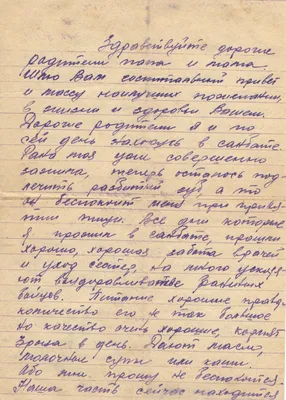 Здравствуйте дорогие
родители папа и мама
Шлю Вам госпитальный привет
и массу наилучших пожеланий
в жизни и здоровьи Вашем.
Дорогие родители я и по
сей день нахожусь в санбате.
Рана моя уже совершенно
зажила, теперь осталось под-
лечить разбитый зуб а то
он беспокоит меня при приня-
тии пищи. Все дни которые
я прожил в санбате, прошли
хорошо, хорошая забота врачей
и уход сестёр, на много ускоря-
ют выздоравливание раненых
бойцов. Питание хорошее правда
количество его не так большое
но качество очень хорошее, кормят
3 раза в день. Дают масло,
молочные супы или каши.
Обо мне прошу не беспокоится.
Наша часть сейчас находится